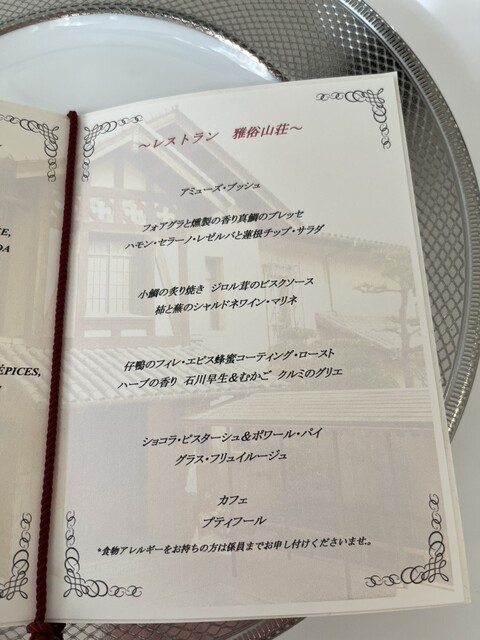 E,
DA
ÉPICES,
～レストラン 雅俗山荘～
アミューズ・ブッシュ
フォアグラと燻製の香り真鯛のプレッセ
ハモン・セラーノ・レゼルバと蓮根チップ・サラダ
小鯛の炙り焼き ジロル茸のビスクソース
柿と蕪のシャルドネワイン・マリネ
仔鴨のフィレ・エピス蜂蜜コーティング・ロースト
ハーブの香り 石川早生＆むかご クルミのグリエ
ショコラ・ピスターシュ＆ポワール・パイ
グラス・フリュイルージュ
カフェ
プティフール
*食物アレルギーをお持ちの方は係員までお申し付けくださいませ。